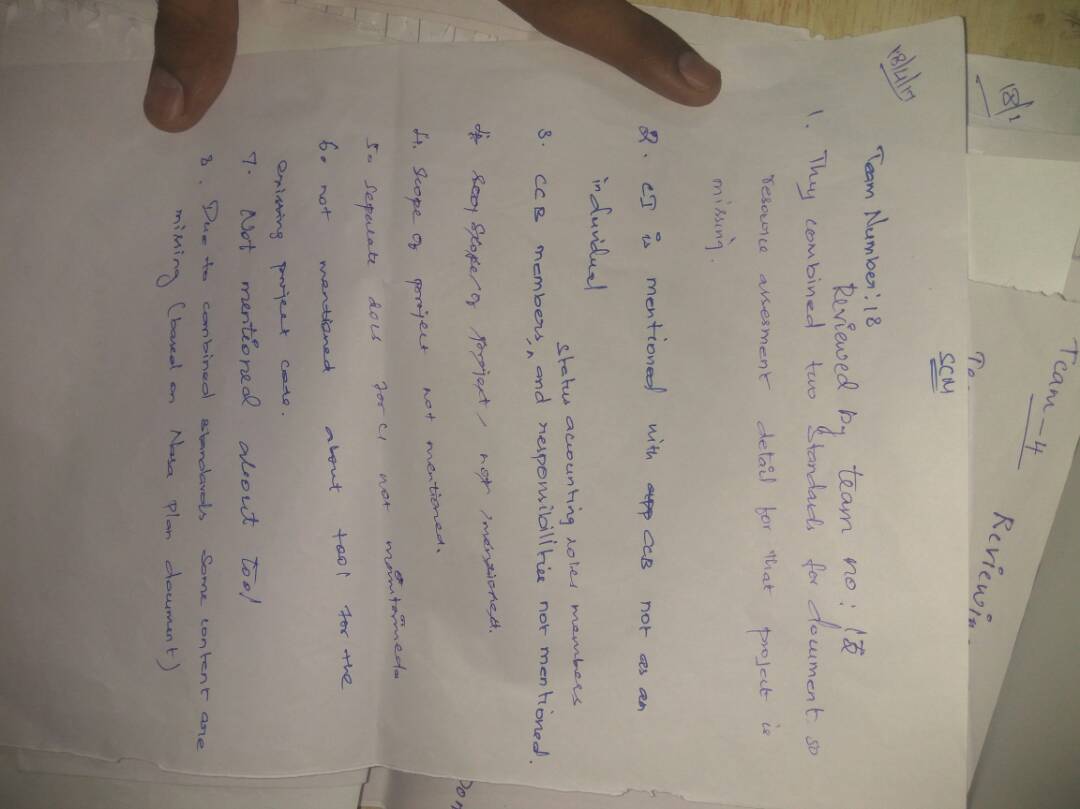 18/4/17
Team Number: 18
Reviewed by team no: 12
1. They combined two standards for document so
resource assesment detail for that project is
missing.
2. CI is mentioned with CCB not as an
individual
status accounting roles members
3. CCB members, and responsibilities not mentioned.
project, not mentioned.
4. Scope of project not mentioned.
5. Separate docs for CI not maintained.
6. not mentioned about tool for the
exissing project code.
7. Not mentioned about tool
8. Due to combined standards some content are
missing (based on Nasa plan document)
Team-4
To
SCM